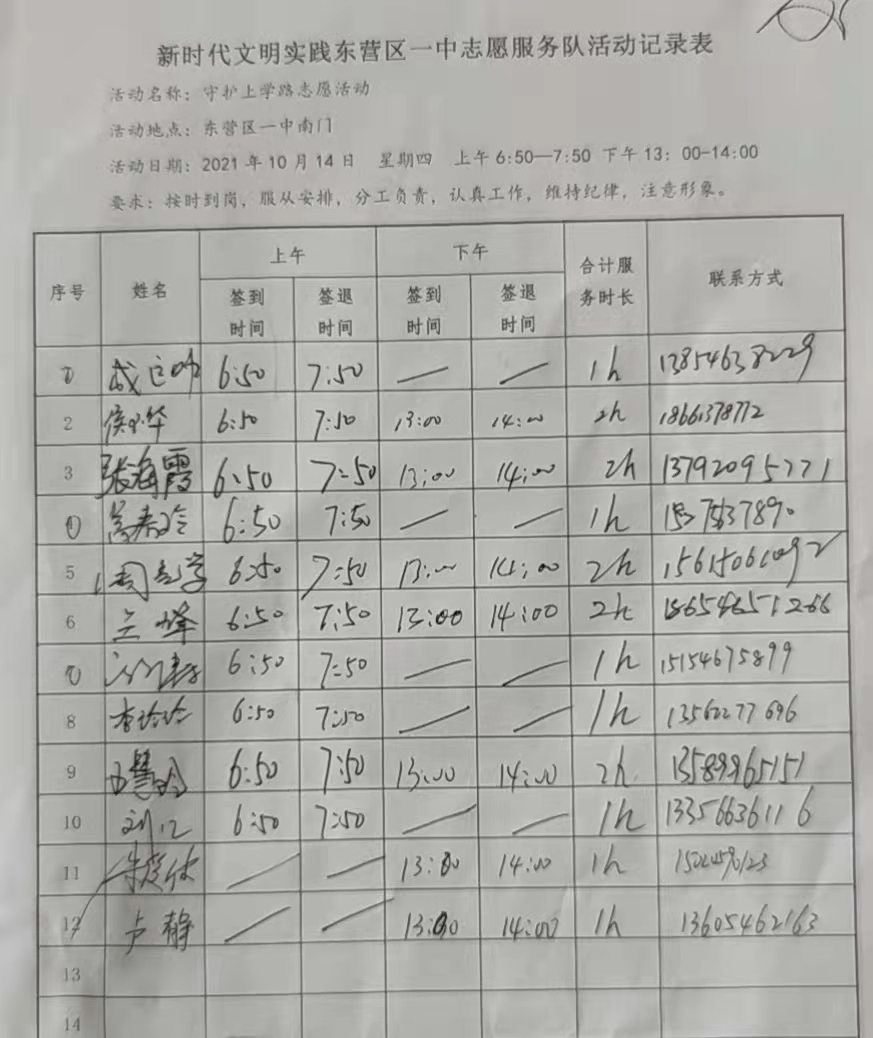 新时代文明实践东营区一中志愿服务队活动记录表
活动名称：守护上学路志愿活动
活动地点：东营区一中南门
活动日期：2021年10月14日 星期四 上午6:50—7:50 下午13：00-14:00
要求：按时到岗，服从安排，分工负责，认真工作，维持纪律，注意形象。
序号 姓名 上午 下午 合计服务时长 联系方式
签到时间 签退时间 签到时间 签退时间
1 6:50 7:50 — — 1h 13854638229
2 6:50 7:50 13:00 14:00 2h 18661378772
3 张海霞 6:50 7:50 13:00 14:00 2h 13792095771
4 6:50 7:50 — — 1h
5 6:50 7:50 13:00 14:00 2h 15615061092
6 兰峰 6:50 7:50 13:00 14:00 2h 18654651266
7 6:50 7:50 — — 1h 15154675899
8 李玲玲 6:50 7:50 — — 1h 13562277696
9 6:50 7:50 13:00 14:00 2h 13589965151
10 6:50 7:50 — — 1h 13356636116
11 — — 13:00 14:00 1h
12 卢静 — — 13:00 14:00 1h 13605462163
13
14